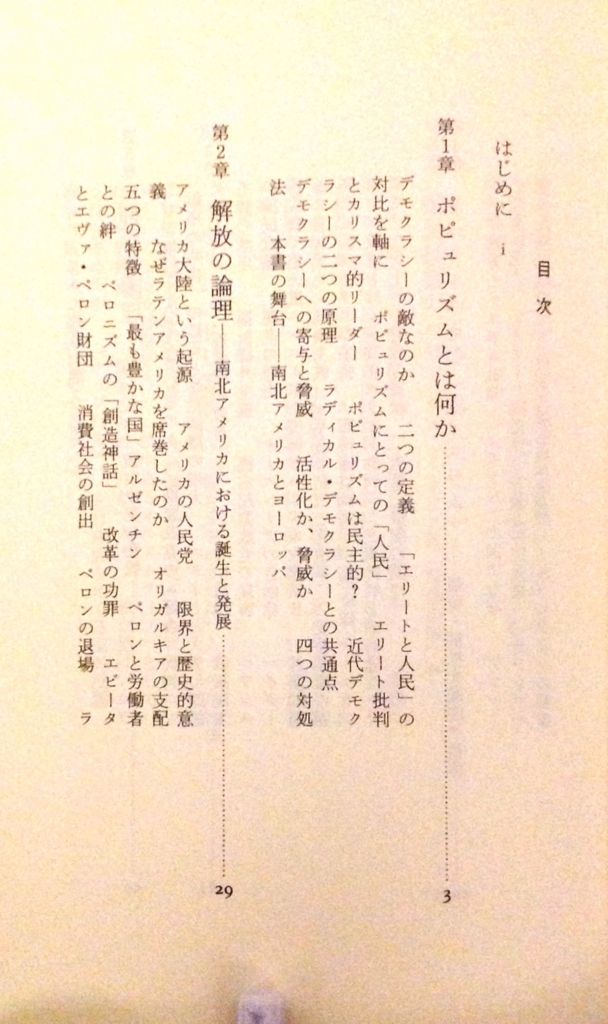 目次
はじめに　i
第1章　ポピュリズムとは何か……………3
デモクラシーの敵なのか　二つの定義　「エリートと人民」の
対比を軸に　ポピュリズムにとっての「人民」　エリート批判
とカリスマ的リーダー　ポピュリズムは民主的？　近代デモク
ラシーの二つの原理　ラディカル・デモクラシーとの共通点
デモクラシーへの寄与と脅威　活性化か、脅威か　四つの対処
法　本書の舞台――南北アメリカとヨーロッパ
第2章　解放の論理――南北アメリカにおける誕生と発展……………29
アメリカ大陸という起源　アメリカの人民党　限界と歴史的意
義　なぜラテンアメリカを席巻したのか　オリガルキアの支配
五つの特徴　「最も豊かな国」アルゼンチン　ペロンと労働者
との絆　ペロニズムの「創造神話」　改革の功罪　エビータ
とエヴァ・ペロン財団　消費社会の創出　ペロンの退場　ラ